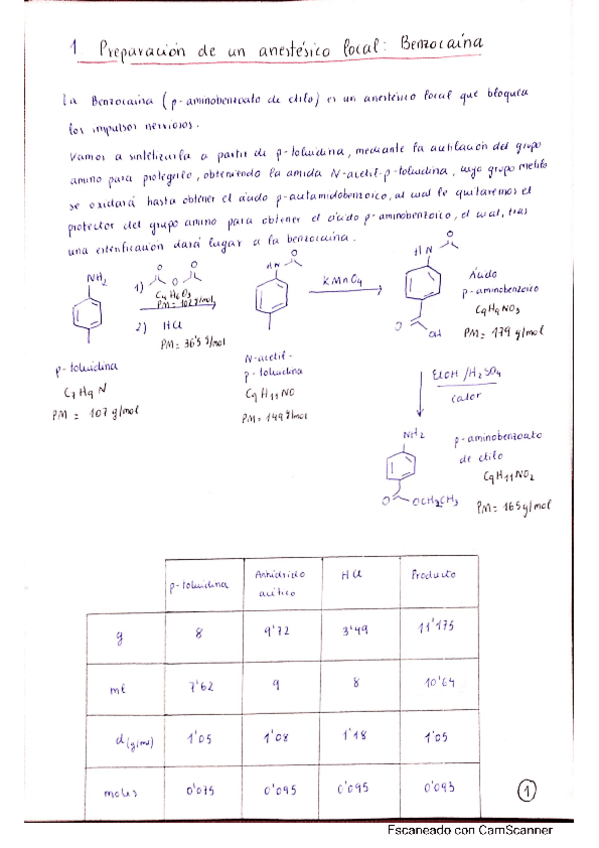 1 Preparación de un anestésico local: Benzocaína
La Benzocaína (p-aminobenzoato de etilo) es un anestésico local que bloquea
los impulsos nerviosos.
Vamos a sintetizarla a partir de p-toluidina, mediante la acetilación del grupo
amino para protegerlo, obteniendo la amida N-acetil-p-toluidina, cuyo grupo metilo
se oxidará hasta obtener el ácido p-acetamidobenzoico, al cual le quitaremos el
protector del grupo amino para obtener el ácido p-aminobenzoico, el cual, tras
una esterificación dará lugar a la benzocaína.
NH2
1)
O O
O
C4H6O3
PM = 102 g/mol
2) HCl
PM = 36'5 g/mol
p-toluidina
C7H9N
PM = 107 g/mol
HN O
N-acetil-
p-toluidina
C9H11NO
PM = 149 g/mol
KMnO4
HN O
O OH
Ácido
p-aminobenzoico
C9H9NO3
PM = 179 g/mol
EtOH/H2SO4
calor
NH2
O OCH2CH3
p-aminobenzoato
de etilo
C9H11NO2
PM = 165 g/mol
p-toluidina Anhídrido acético HCl Producto
g 8 9'72 3'49 11'175
ml 7'62 9 8 10'64
d(g/ml) 1'05 1'08 1'18 1'05
moles 0'075 0'095 0'095 0'093
1
Escaneado con CamScanner